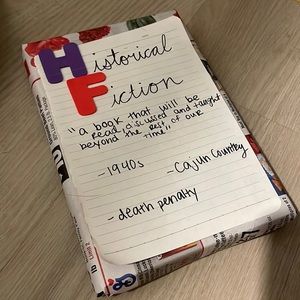 Historical
Fiction
"a book that will be
read, discussed and taught
beyond the rest of our
time"
-1940s
-Cajun Country
-death penalty